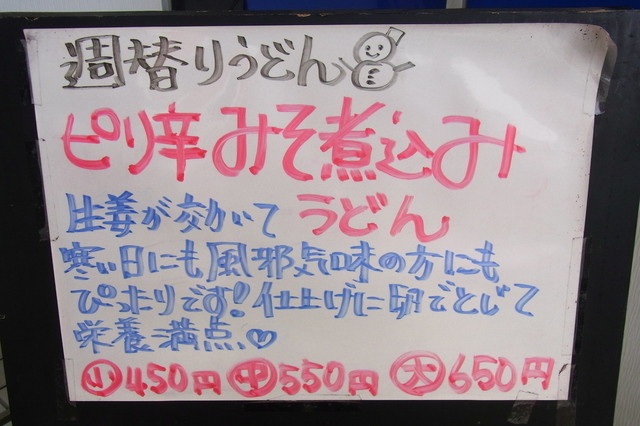 週替りうどん
ピリ辛みそ煮込み
うどん
生姜が効いてて
寒い日にも風邪気味の方にも
ぴったりです!仕上げに卵でとじて
栄養満点♡
小450円 中550円 大650円